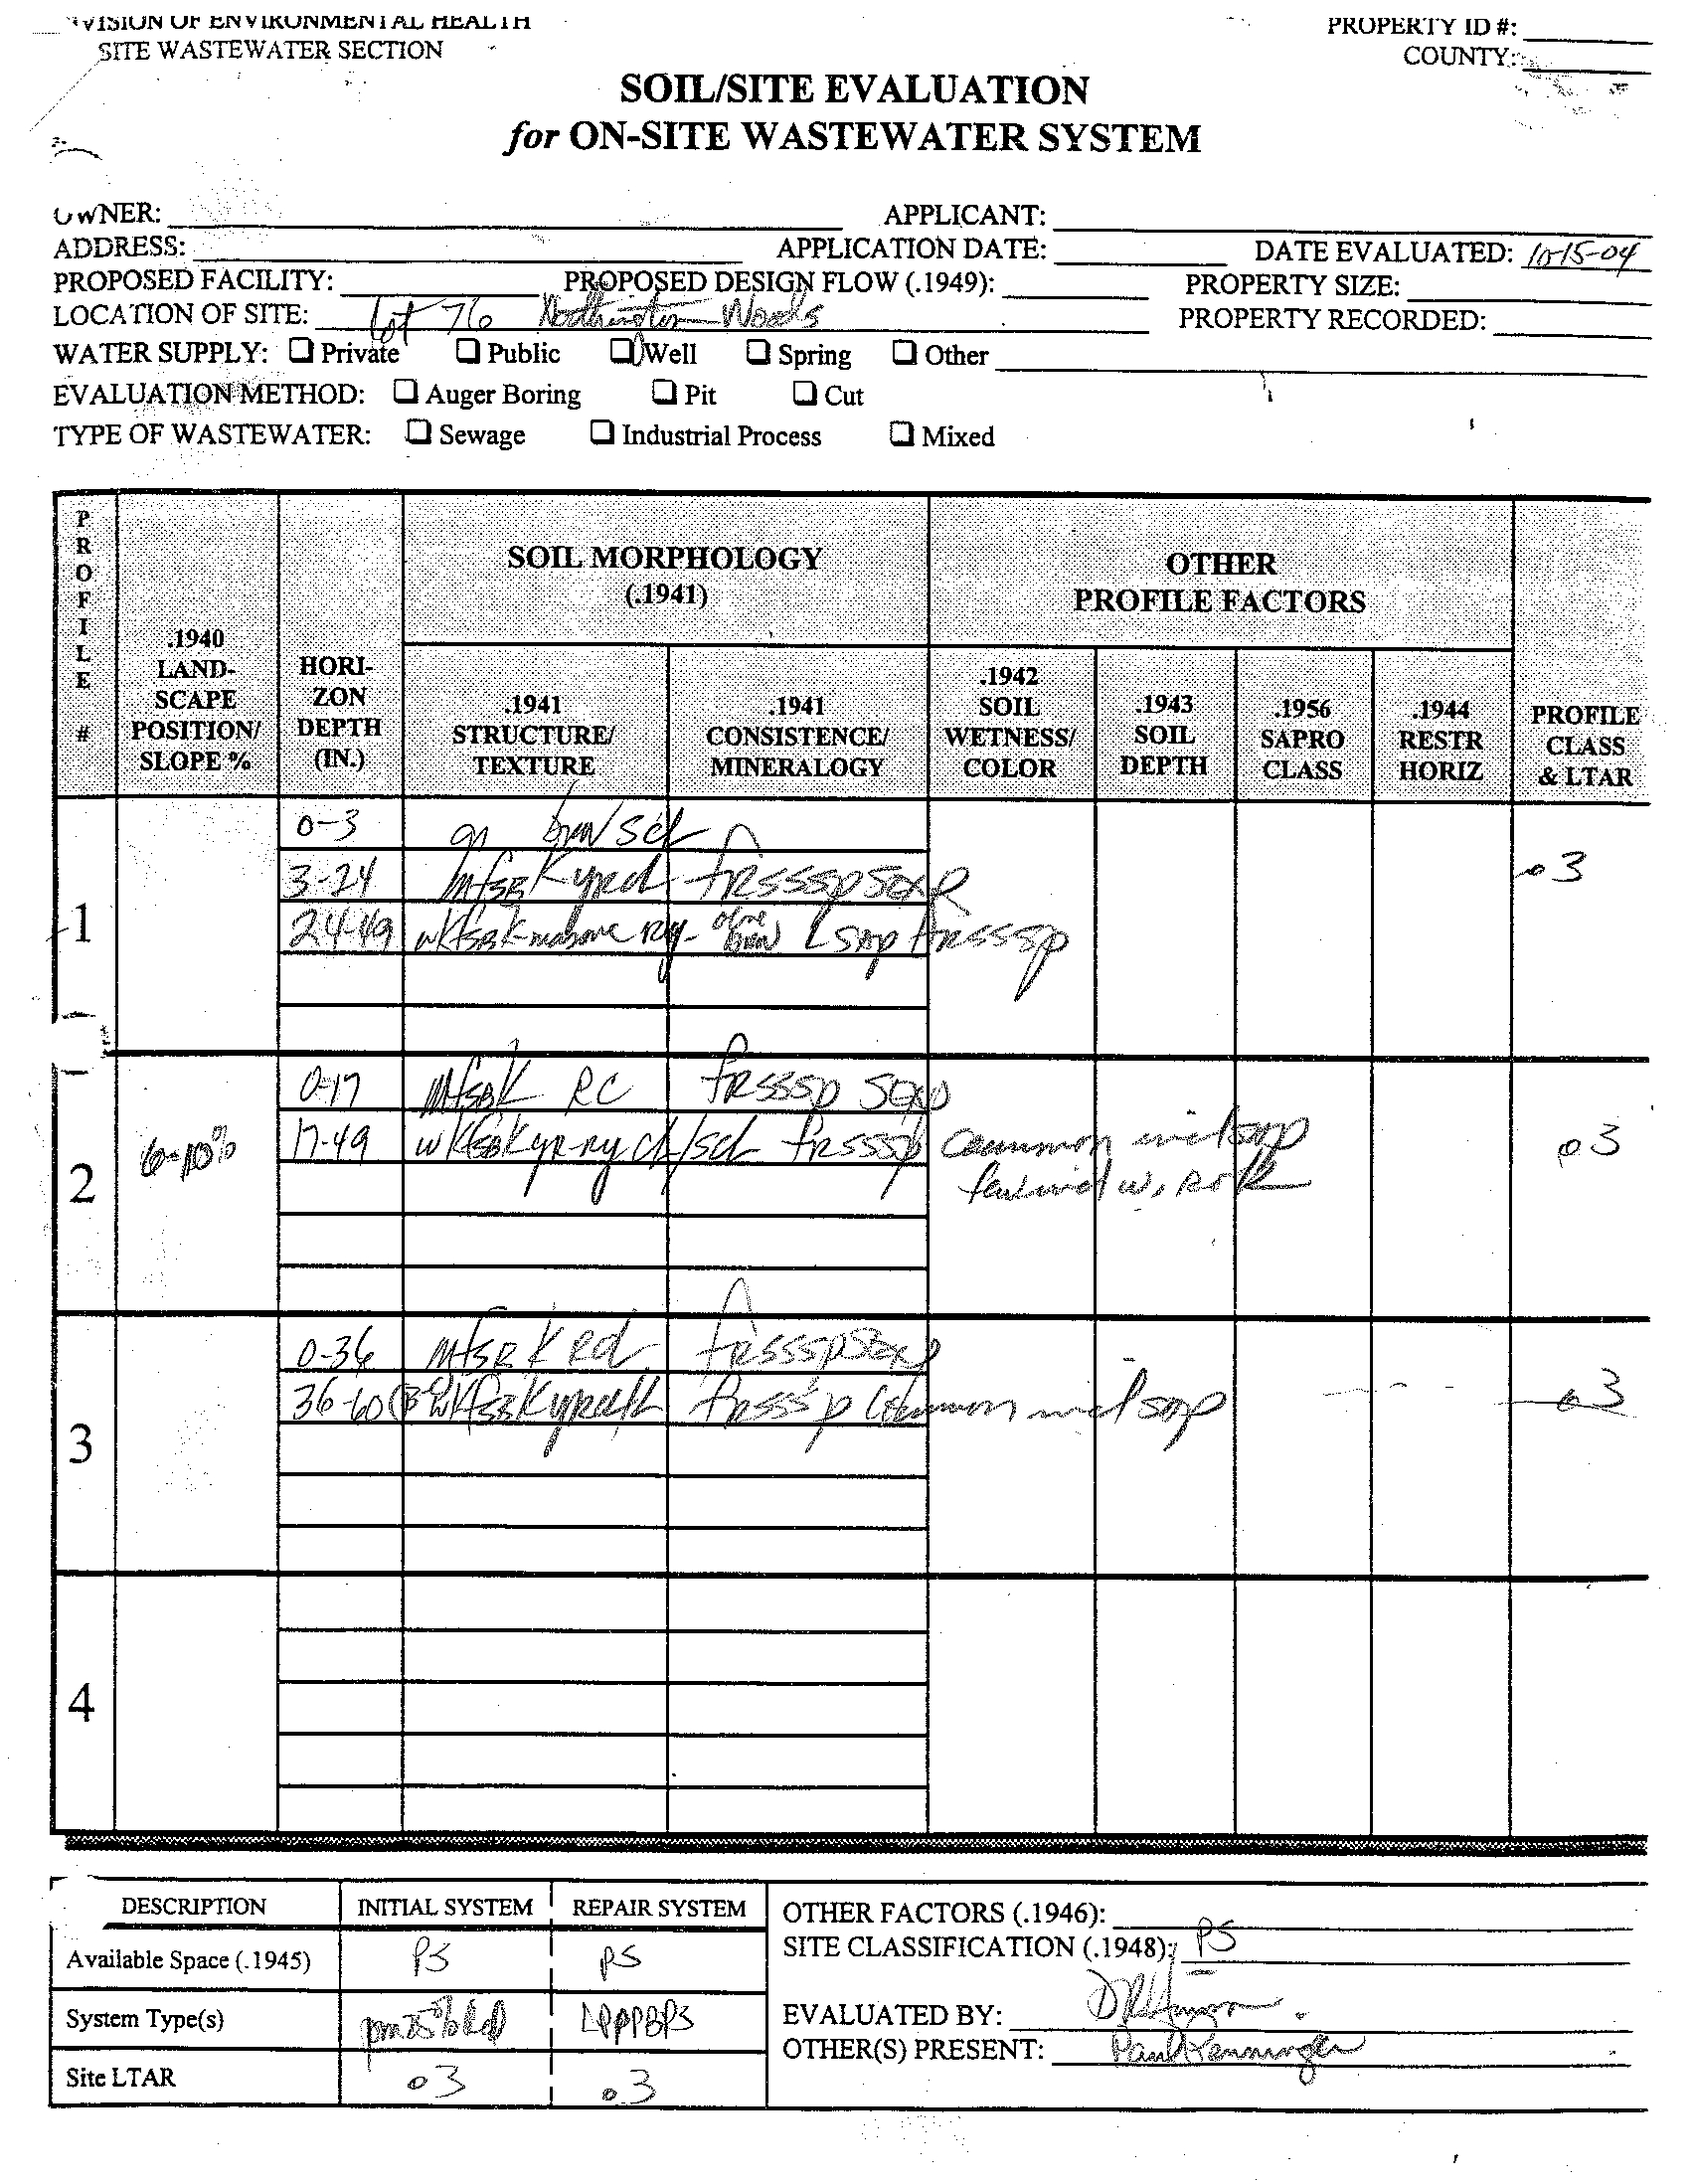 VISION OF ENVIRONMENTAL HEALTH
SITE WASTEWATER SECTION
PROPERTY ID #:
COUNTY:
SOIL/SITE EVALUATION
for ON-SITE WASTEWATER SYSTEM
OWNER: APPLICANT:
ADDRESS: APPLICATION DATE: DATE EVALUATED: 10-15-04
PROPOSED FACILITY: PROPOSED DESIGN FLOW (.1949): PROPERTY SIZE:
LOCATION OF SITE: Lot 76 Northington Woods PROPERTY RECORDED:
WATER SUPPLY: ❑ Private ❑ Public ❑ Well ❑ Spring ❑ Other
EVALUATION METHOD: ❑ Auger Boring ❑ Pit ❑ Cut
TYPE OF WASTEWATER: ❑ Sewage ❑ Industrial Process ❑ Mixed
PROFILE #
.1940 LAND-SCAPE POSITION/ SLOPE %
HORI-ZON DEPTH (IN.)
SOIL MORPHOLOGY (.1941)
.1941 STRUCTURE/ TEXTURE
.1941 CONSISTENCE/ MINERALOGY
OTHER PROFILE FACTORS
.1942 SOIL WETNESS/ COLOR
.1943 SOIL DEPTH
.1956 SAPRO CLASS
.1944 RESTR HORIZ
PROFILE CLASS & LTAR
1
0-3 brn scl
3-24 mfsbk yrcl frsssp sexp .3
24-49 wkfsbk-massive ry- olive brn L sap frsssp
2 6-10%
0-17 mfsbk RC frsssp sexp
17-49 wkfsbk yr-ry cl/scl frsssp common incl sap .3
w. rock
3
0-36 mfsbk Rcl frsssp sexp
36-60 wkfsbk frsssp common incl sap .3
4
DESCRIPTION INITIAL SYSTEM REPAIR SYSTEM
Available Space (.1945) PS PS
System Type(s) LPPPBPS
Site LTAR .3 .3
OTHER FACTORS (.1946):
SITE CLASSIFICATION (.1948): PS
EVALUATED BY:
OTHER(S) PRESENT: Paul